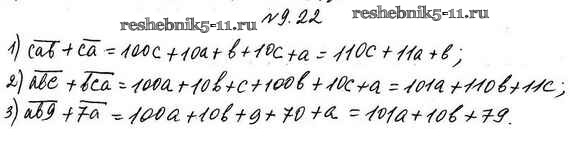 reshebnik5-11.ru
reshebnik5-11.ru
№9.22
1) c̅a̅b̅ + c̅a̅ = 100c + 10a + b + 10c + a = 110c + 11a + b;
2) a̅b̅c̅ + b̅c̅a̅ = 100a + 10b + c + 100b + 10c + a = 101a + 110b + 11c;
3) a̅b̅9̅ + 7̅a̅ = 100a + 10b + 9 + 70 + a = 101a + 10b + 79.